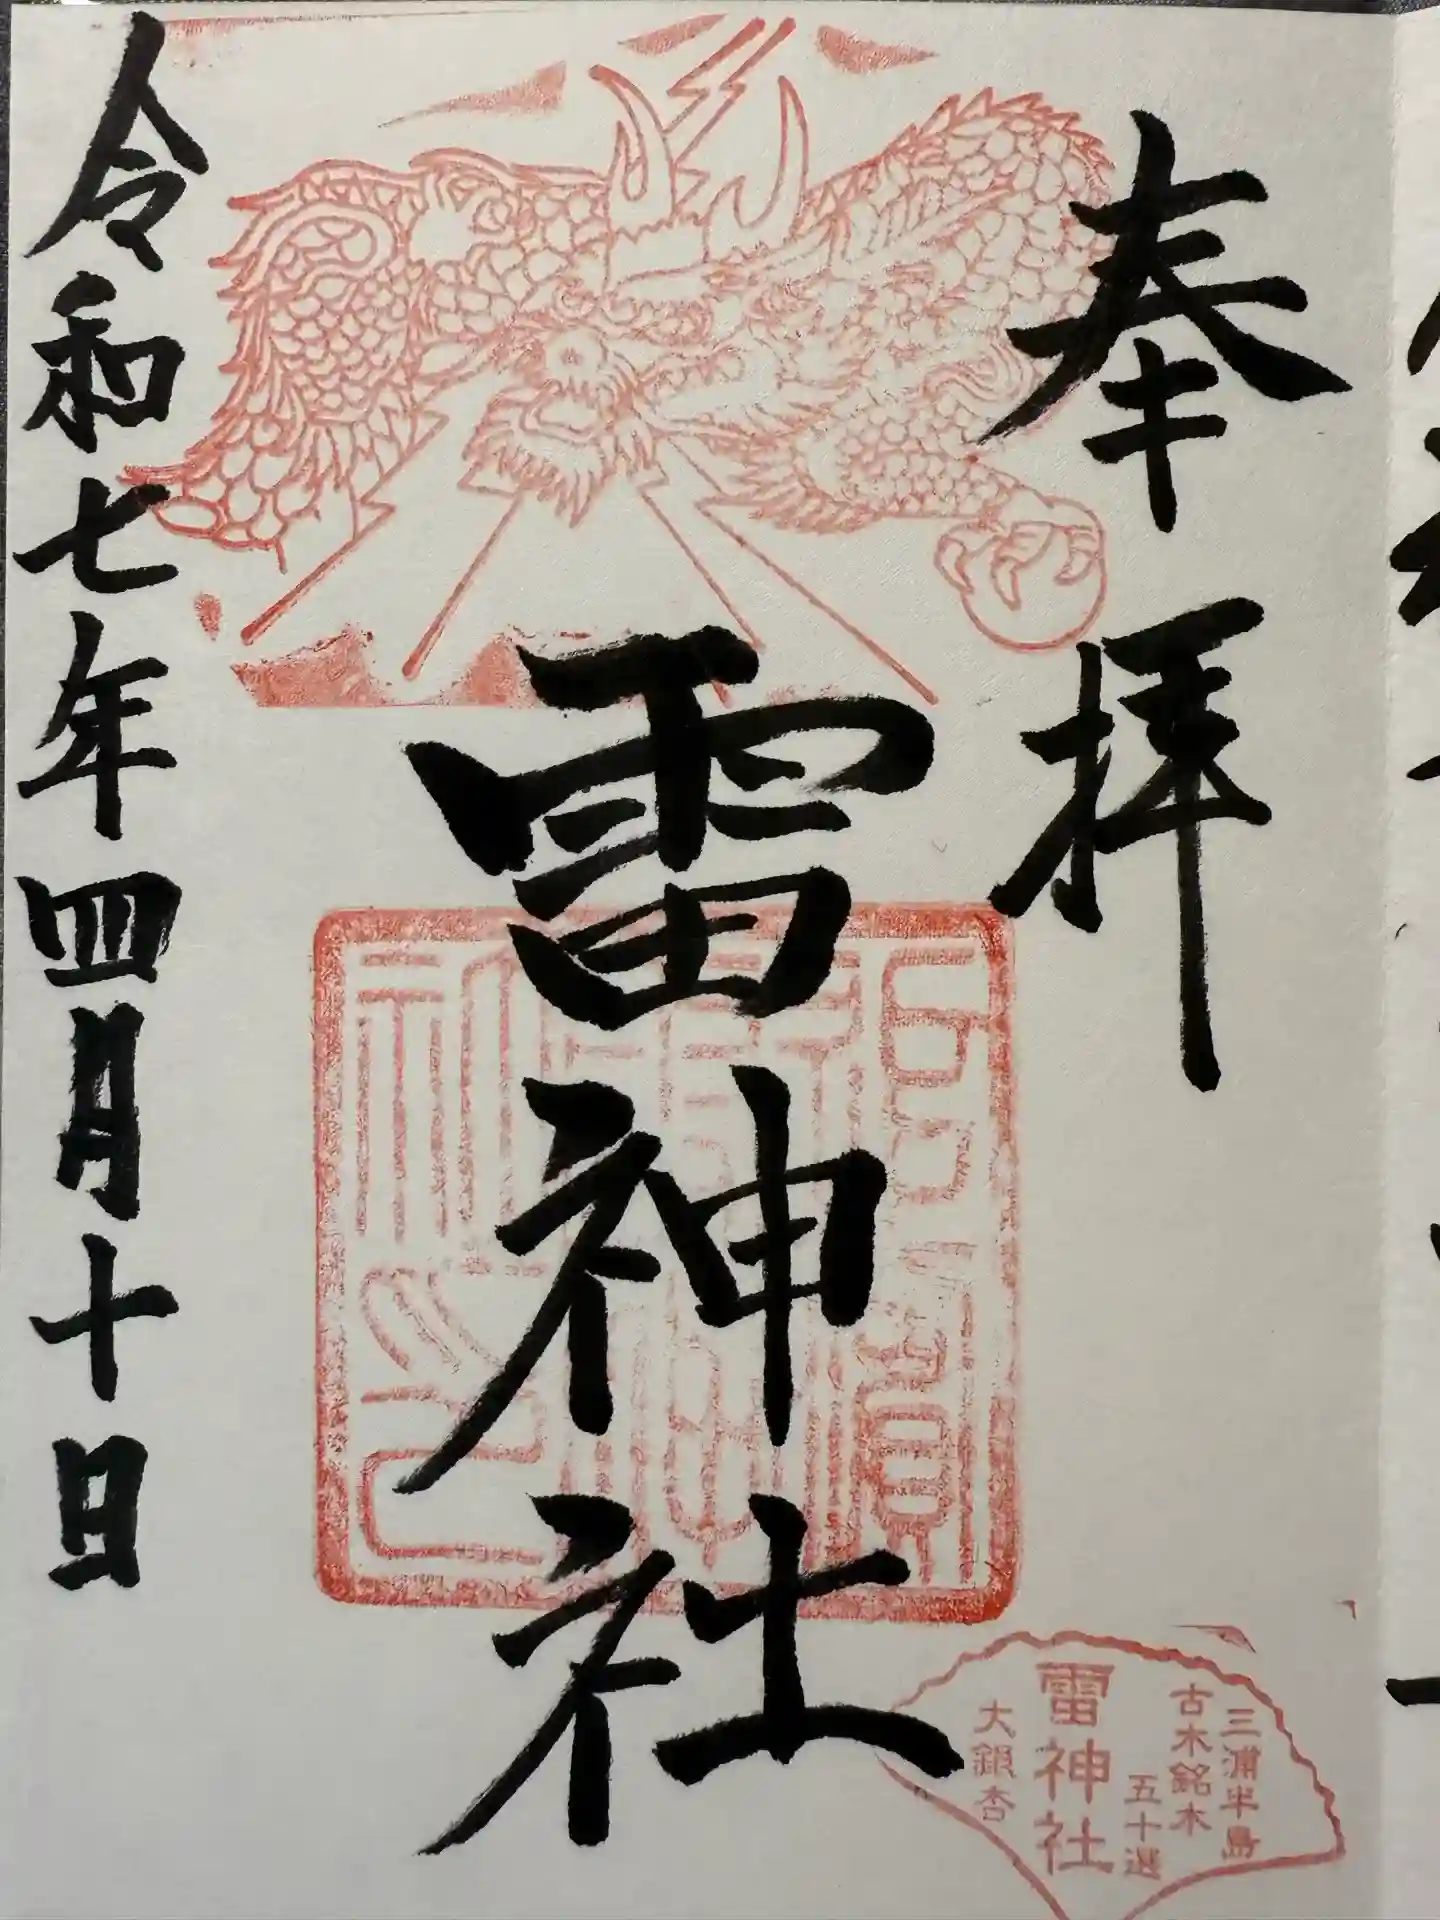 奉拝
雷神社
令和七年四月十日
三浦半島
古木銘木
五十選
雷神社
大銀杏